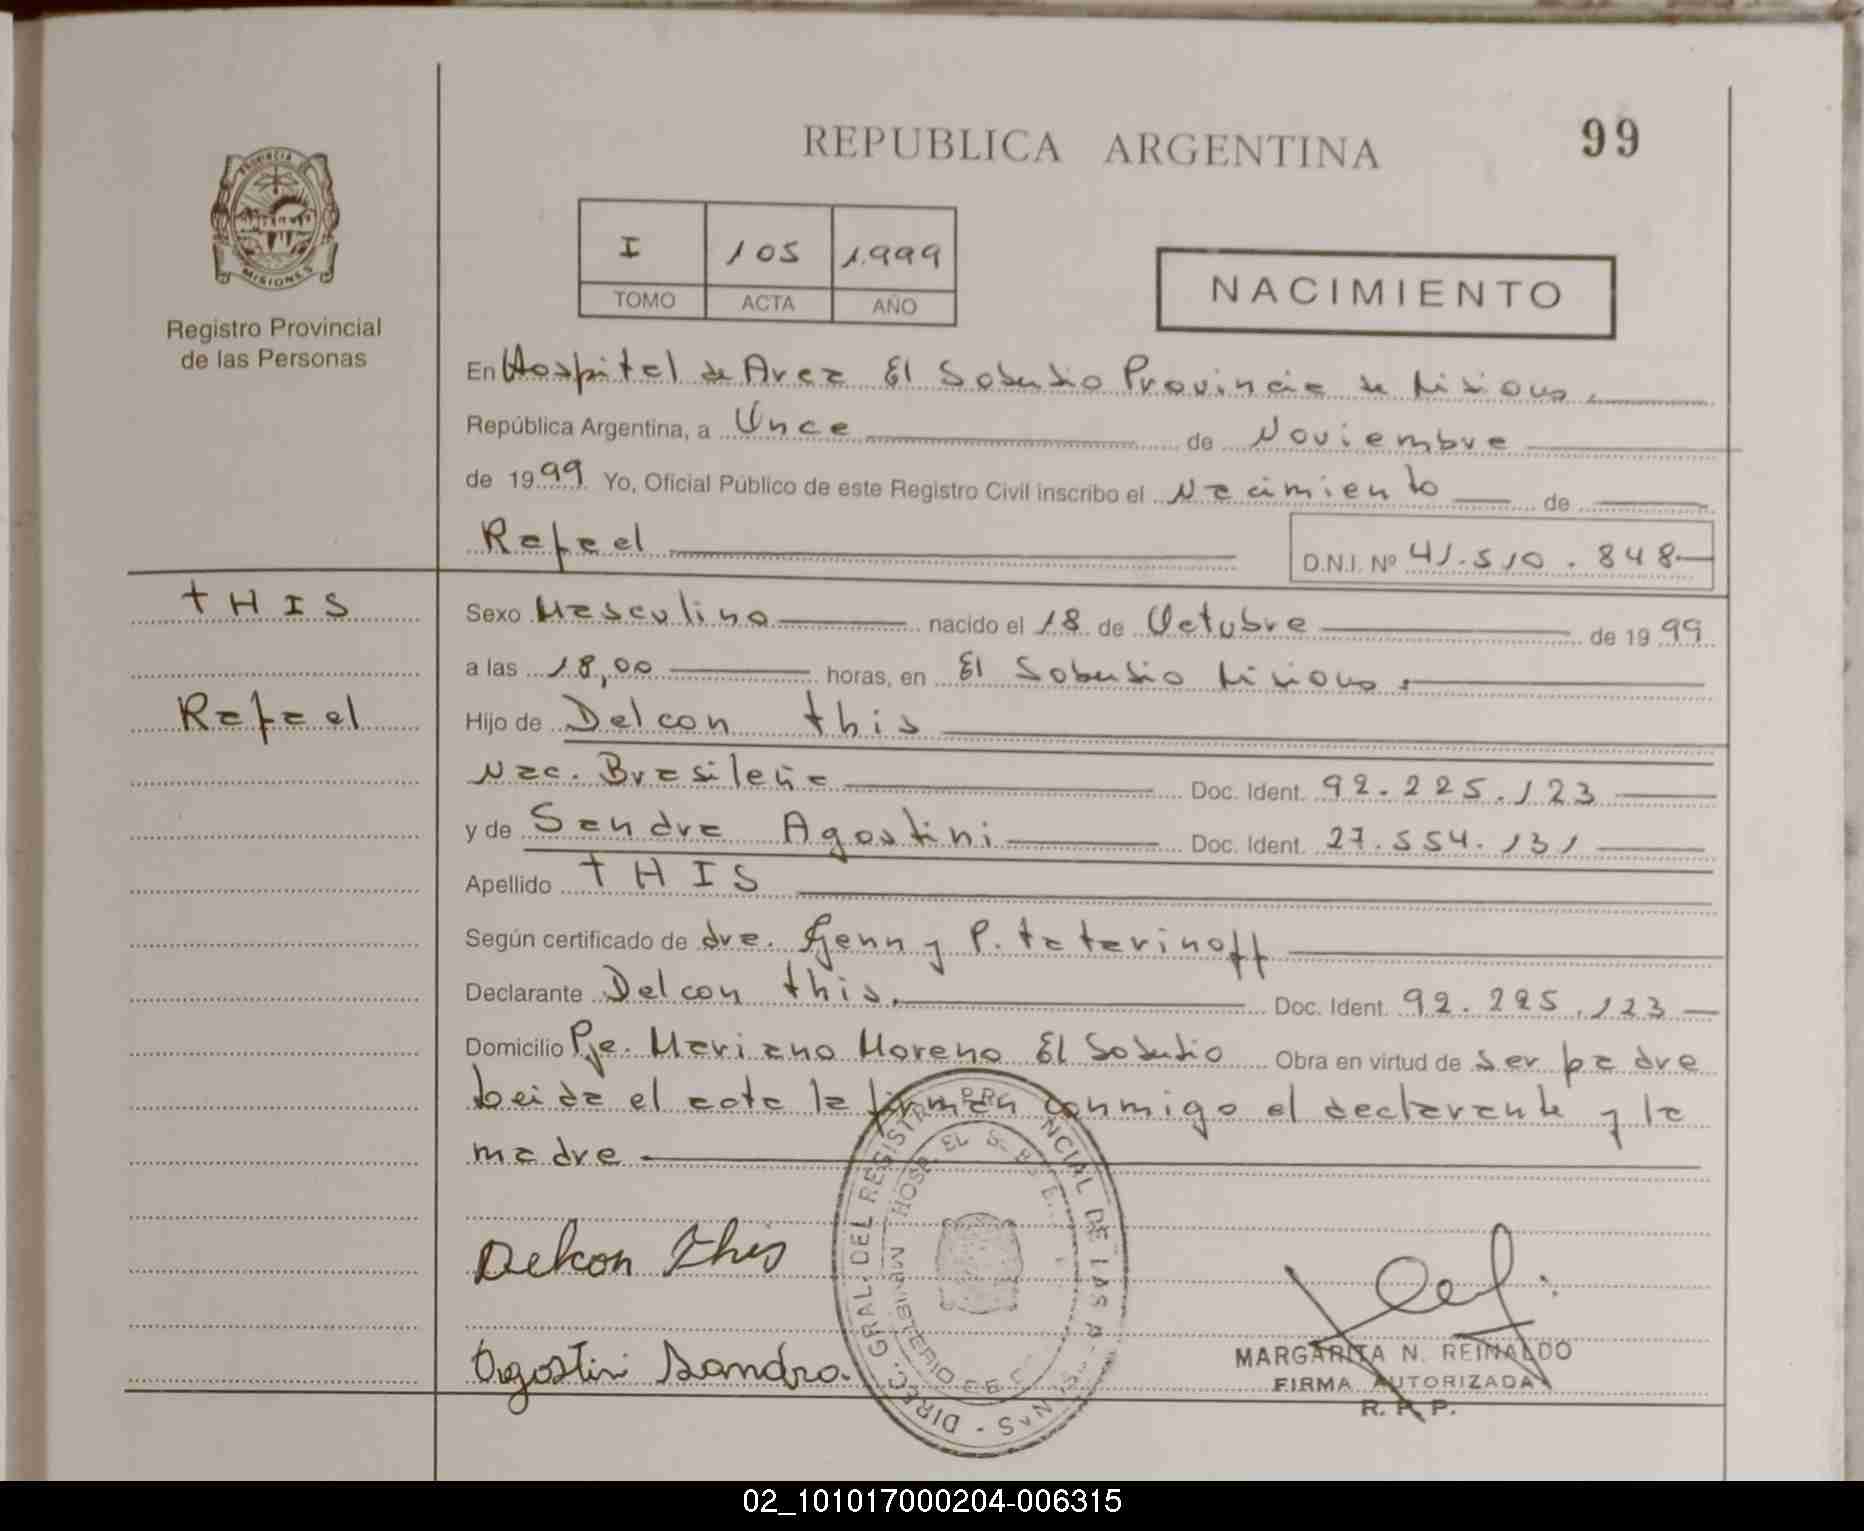 REPUBLICA ARGENTINA
99
PROVINCIA DE
MISIONES
Registro Provincial
de las Personas
I 105 1.999
TOMO ACTA AÑO
NACIMIENTO
En Hospital de Area El Soberbio Provincia de Misiones.
República Argentina, a Once de Noviembre
de 1999 Yo, Oficial Público de este Registro Civil inscribo el Nacimiento de
Rafael D.N.I. Nº 41.510.848
THIS
Rafael
Sexo Masculino nacido el 18 de Octubre de 1999
a las 18,00 horas, en El Soberbio Misiones.
Hijo de Delcon this
Nac. Brasileña Doc. Ident. 92.225.123
y de Sandra Agostini Doc. Ident. 27.554.131
Apellido THIS
Según certificado de dra. Genny P. tatarinoff
Declarante Delcon this. Doc. Ident. 92.225.123
Domicilio Pje. Mariano Moreno El Soberbio Obra en virtud de ser padre
Leida el acta la firman conmigo el declarante y la
madre
Delcon This
Agostini Sandra.
DIREC. GRAL. DEL REGISTR PR NCIAL DE LAS P NAS
MINISTERIO DE HOSP. EL
MARGARITA N. REINALDO
FIRMA AUTORIZADA
R. P. P.
02_101017000204-006315